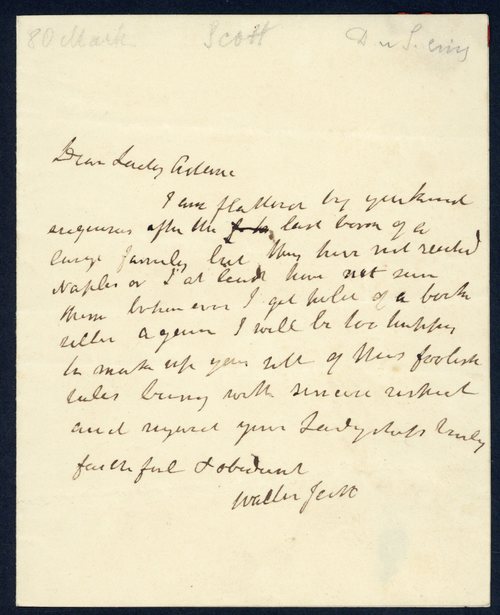 80 Mark Scott
Dear Lady Adam
I am flattered by your kind
enquiries after the last born of a
large family but they have not reached
Naples or I at least have not seen
them Whenever I get hold of a book
seller again I will be too happy
to make up your sett of these foolish
tales being with sincere respect
and regard your Ladyships truly
faithful & obedient
Walter Scott